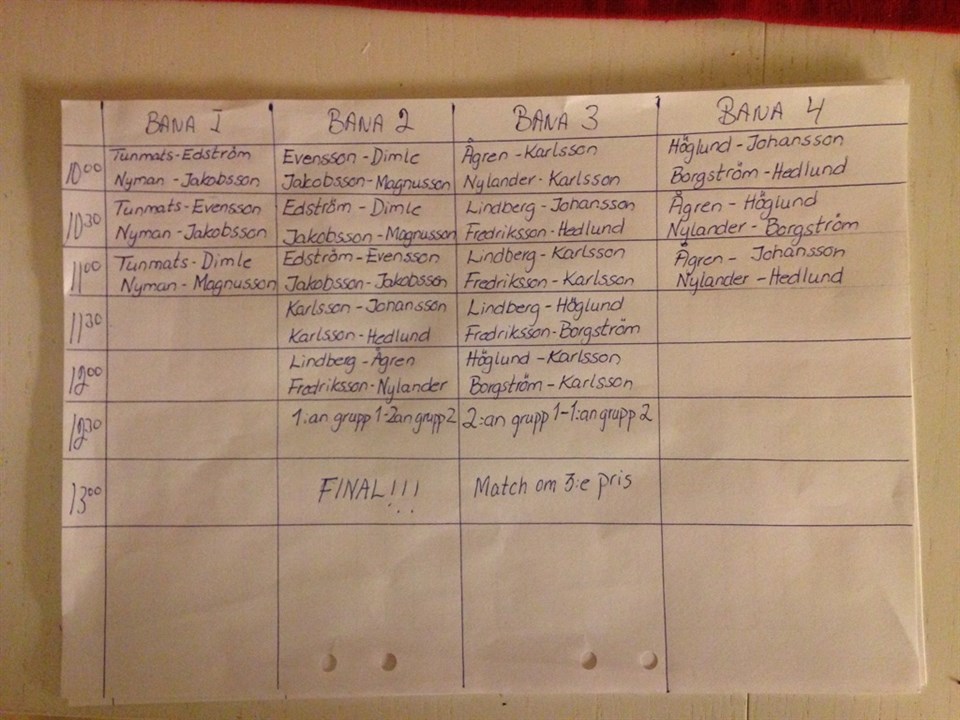 BANA I BANA 2 BANA 3 BANA 4
10⁰⁰ Tunmats-Edström Evensson-Dimle Ågren-Karlsson Höglund-Johansson
Nyman-Jakobsson Jakobsson-Magnusson Nylander-Karlsson Borgström-Hedlund
10³⁰ Tunmats-Evensson Edström-Dimle Lindberg-Johansson Ågren-Höglund
Nyman-Jakobsson Jakobsson-Magnusson Fredriksson-Hedlund Nylander-Borgström
11⁰⁰ Tunmats-Dimle Edström-Evensson Lindberg-Karlsson Ågren-Johansson
Nyman-Magnusson Jakobsson-Jakobsson Fredriksson-Karlsson Nylander-Hedlund
11³⁰ Karlsson-Johansson Lindberg-Höglund
Karlsson-Hedlund Fredriksson-Borgström
12⁰⁰ Lindberg-Ågren Höglund-Karlsson
Fredriksson-Nylander Borgström-Karlsson
12³⁰ 1:an grupp 1-2:an grupp 2 2:an grupp 1-1:an grupp 2
13⁰⁰ FINAL!!! Match om 3:e pris